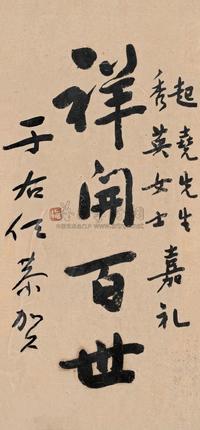 起尧先生
秀英女士嘉礼
祥開百世
于右任恭贺